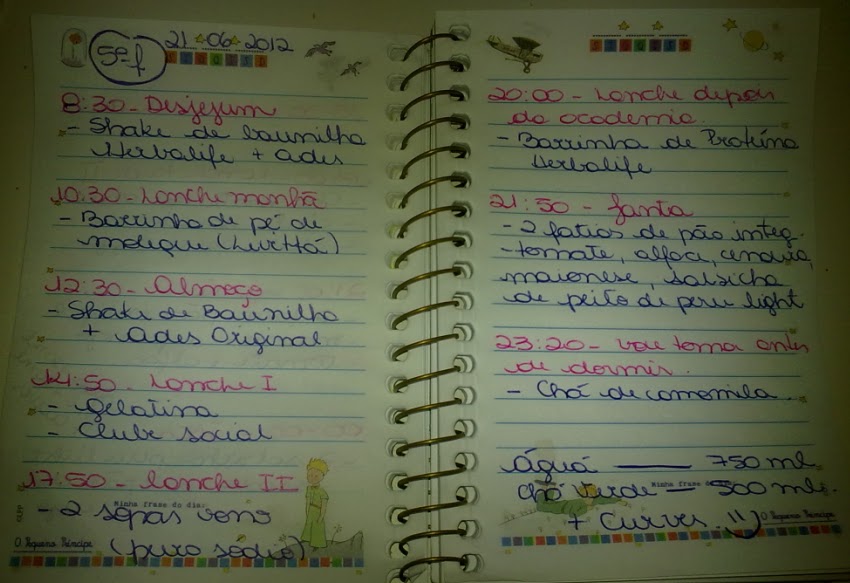 5ª f
21 06 2012
STQQSSD
8:30 - Desjejum
- Shake de baunilha
Herbalife + Ades
10:30 - Lanche manhã
- Barrinha de pé de
moleque (LivHá)
12:30 - Almoço
- Shake de Baunilha
+ Ades Original
14:50 - Lanche I
- gelatina
- Clube social
17:50 - Lanche II
Minha frase do dia:
- 2 sopas vono
(puro sódio)
O Pequeno Príncipe
STQQSSD
20:00 - Lanche depois
da academia.
- Barrinha de Proteína
Herbalife
21:50 - Janta
- 2 fatias de pão integ.
- tomate, alface, cenoura,
maionese, salsicha
de peito de peru light
23:20 - vou tomar antes
de dormir.
- Chá de camomila.
Água — 750 ml.
Minha frase do
Chá Verde — 500 ml.
+ Curves. =)
O Pequeno Príncipe